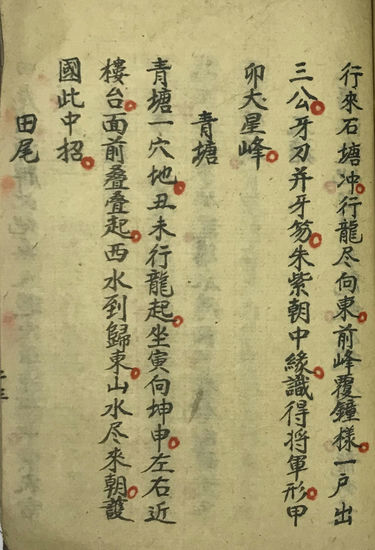 行來石塘冲行龍尽向東前峰覆鐘樣一戶出
三公牙刀并牙笏朱紫朝中緣識得将軍形甲
卯大星峰
青塘
青塘一穴地丑未行龍起坐寅向坤申左右近
樓台面前叠叠起西水到歸東山水尽來朝護
國此中招
田尾